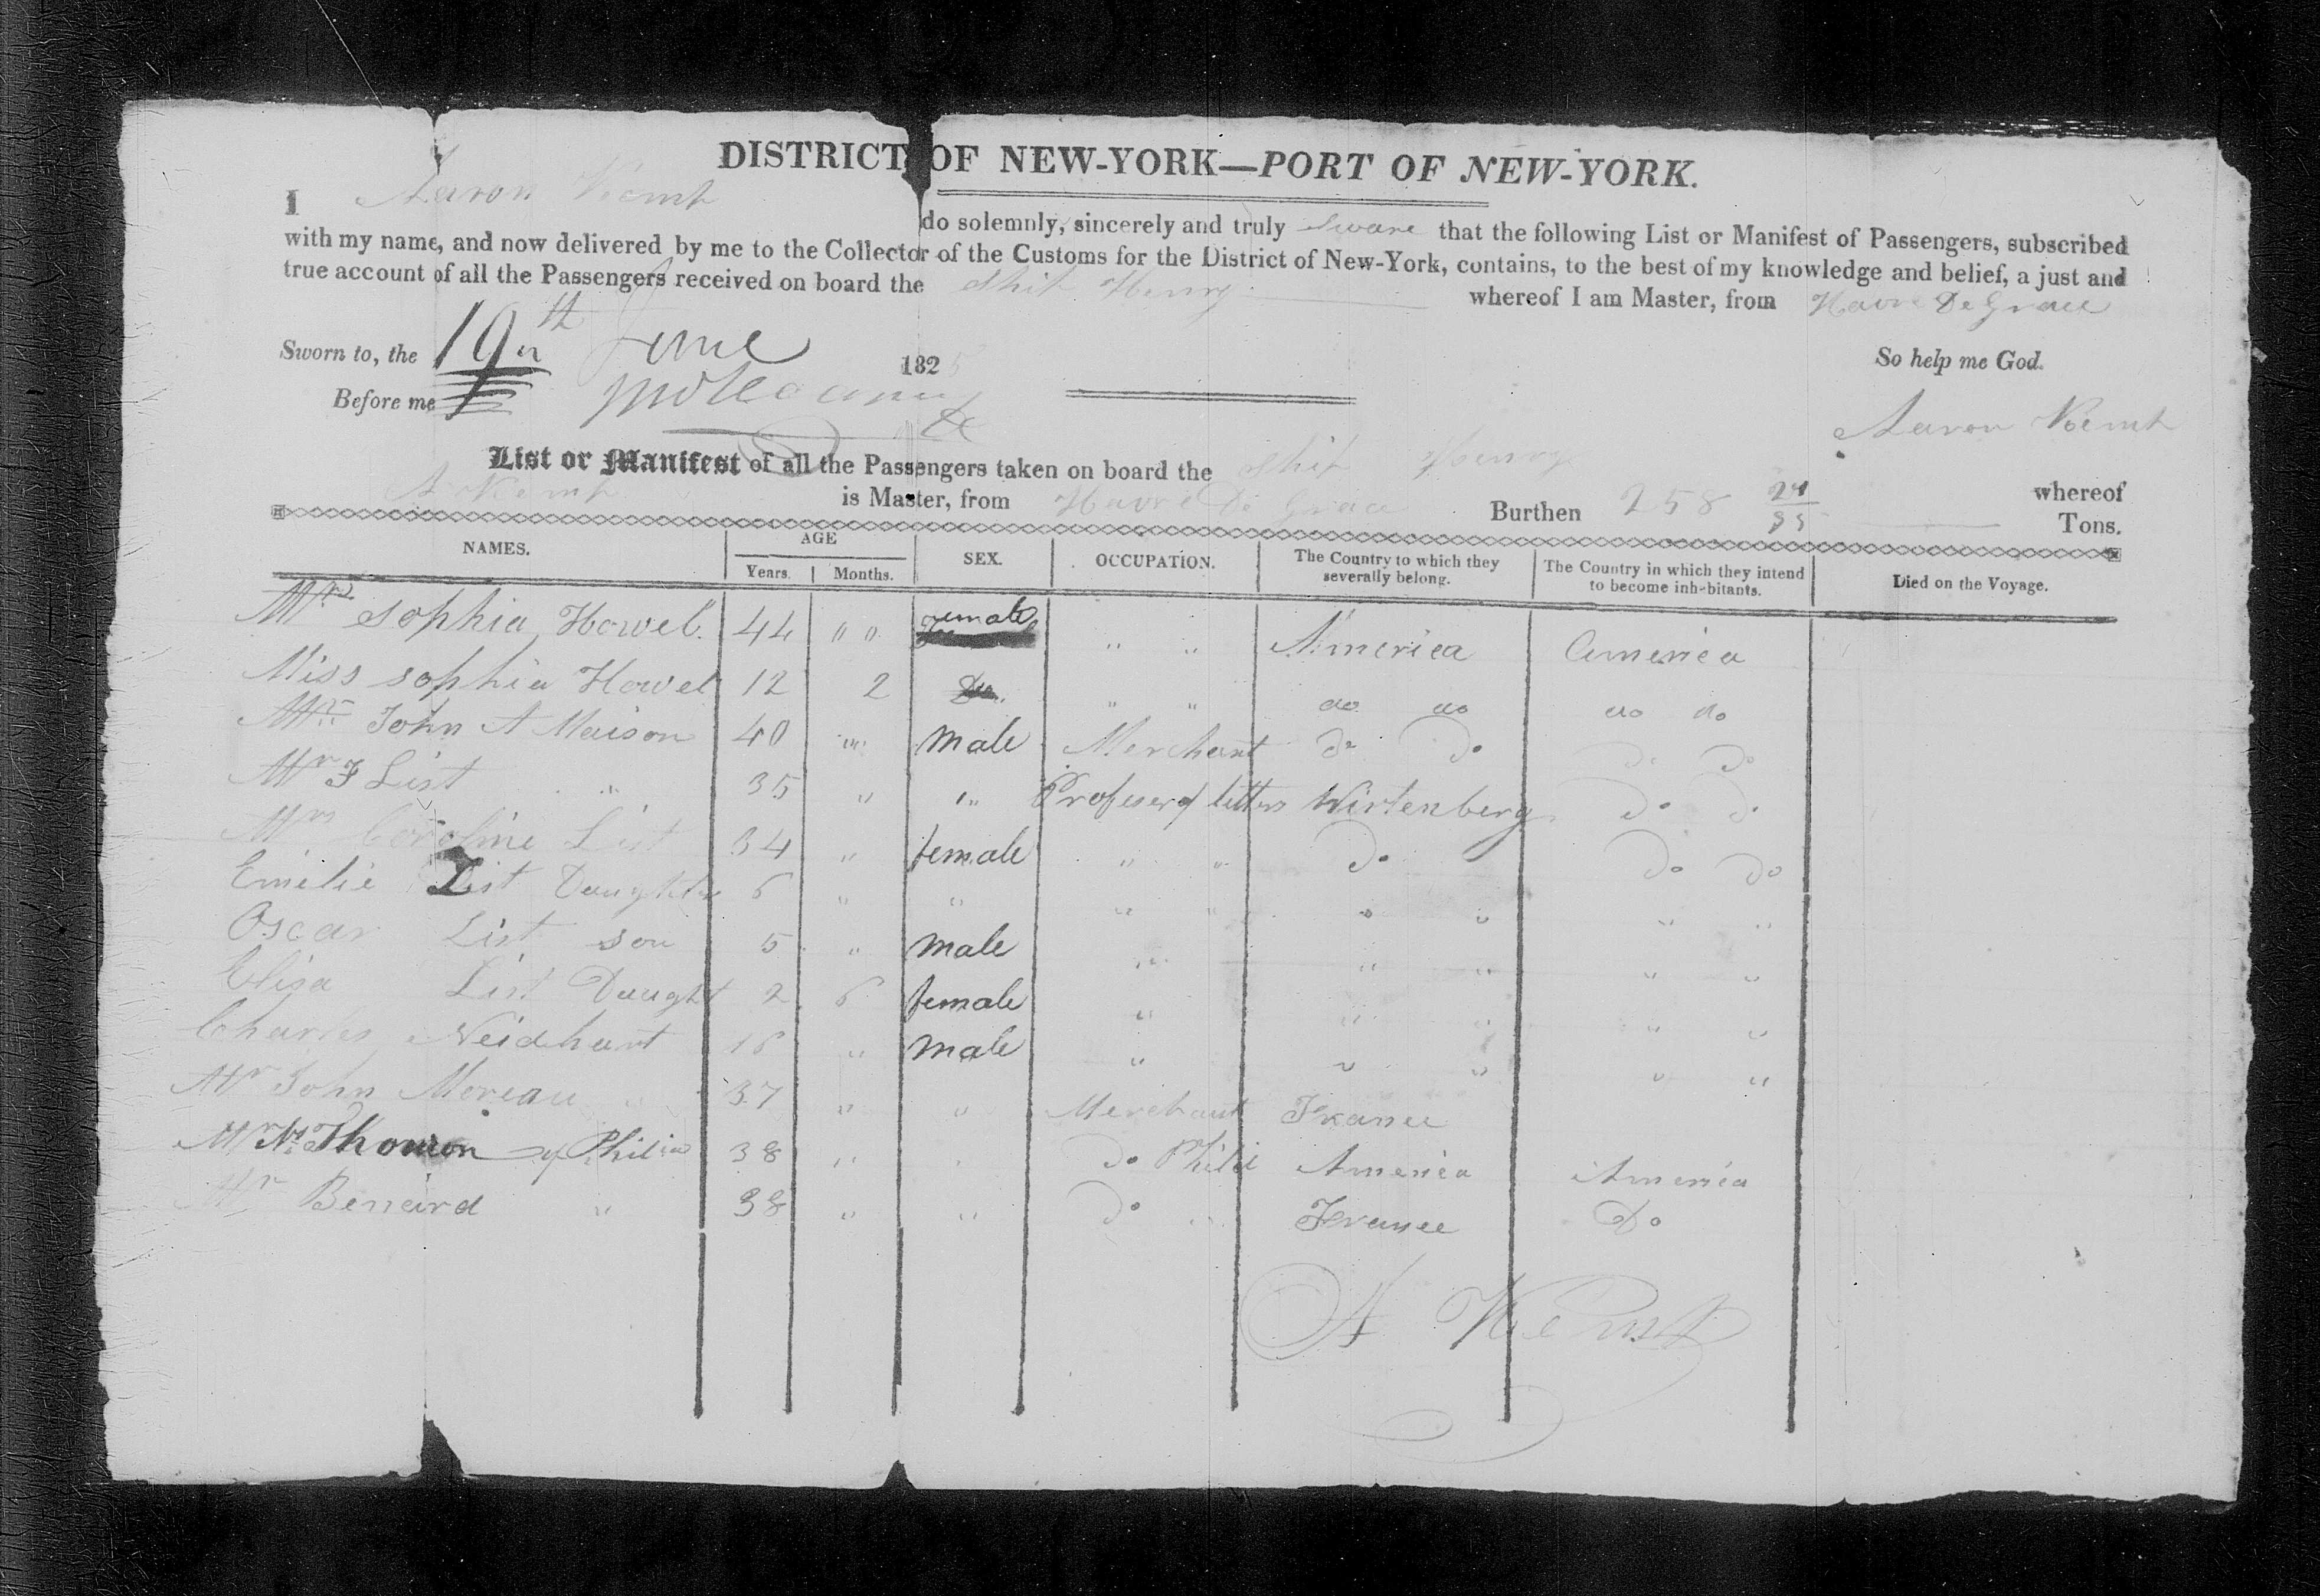 DISTRICT OF NEW-YORK—PORT OF NEW-YORK.
I Aaron Kemp do solemnly, sincerely and truly Sware that the following List or Manifest of Passengers, subscribed
with my name, and now delivered by me to the Collector of the Customs for the District of New-York, contains, to the best of my knowledge and belief, a just and
true account of all the Passengers received on board the Ship Henry whereof I am Master, from Havre De Grace
Sworn to, the 19th June 182 So help me God.
Before me
Aaron Kemp
List or Manifest of all the Passengers taken on board the Ship Henry whereof
A Kemp is Master, from Havre De Grace Burthen 258 24/95 Tons.
NAMES. AGE SEX. OCCUPATION. The Country to which they severally belong. The Country in which they intend to become inhabitants. Died on the Voyage.
Years. Months.
Mrs Sophia Howel 44 " " female " " America America
Miss Sophia Howel 12 2 Do. " " do do do do
Mr John A Maison 40 " male Merchant Do Do Do Do
Mr F List " 35 " " Profeser of letters Wirtenberg Do Do
Mrs Caroline List 34 " female " " Do Do Do
Emelie List Daughter 6 " " " " " " " "
Oscar List son 5 " male " " " " "
Elisa List Daught 2 6 female " " " " "
Charles Neidhart 16 " male " " " " "
Mr John Moreau " 37 " " Merchant France
Mr Thomson of Philia 38 " " Do Philid America America
Mr Beneird " 38 " " Do " France Do
A Kemp